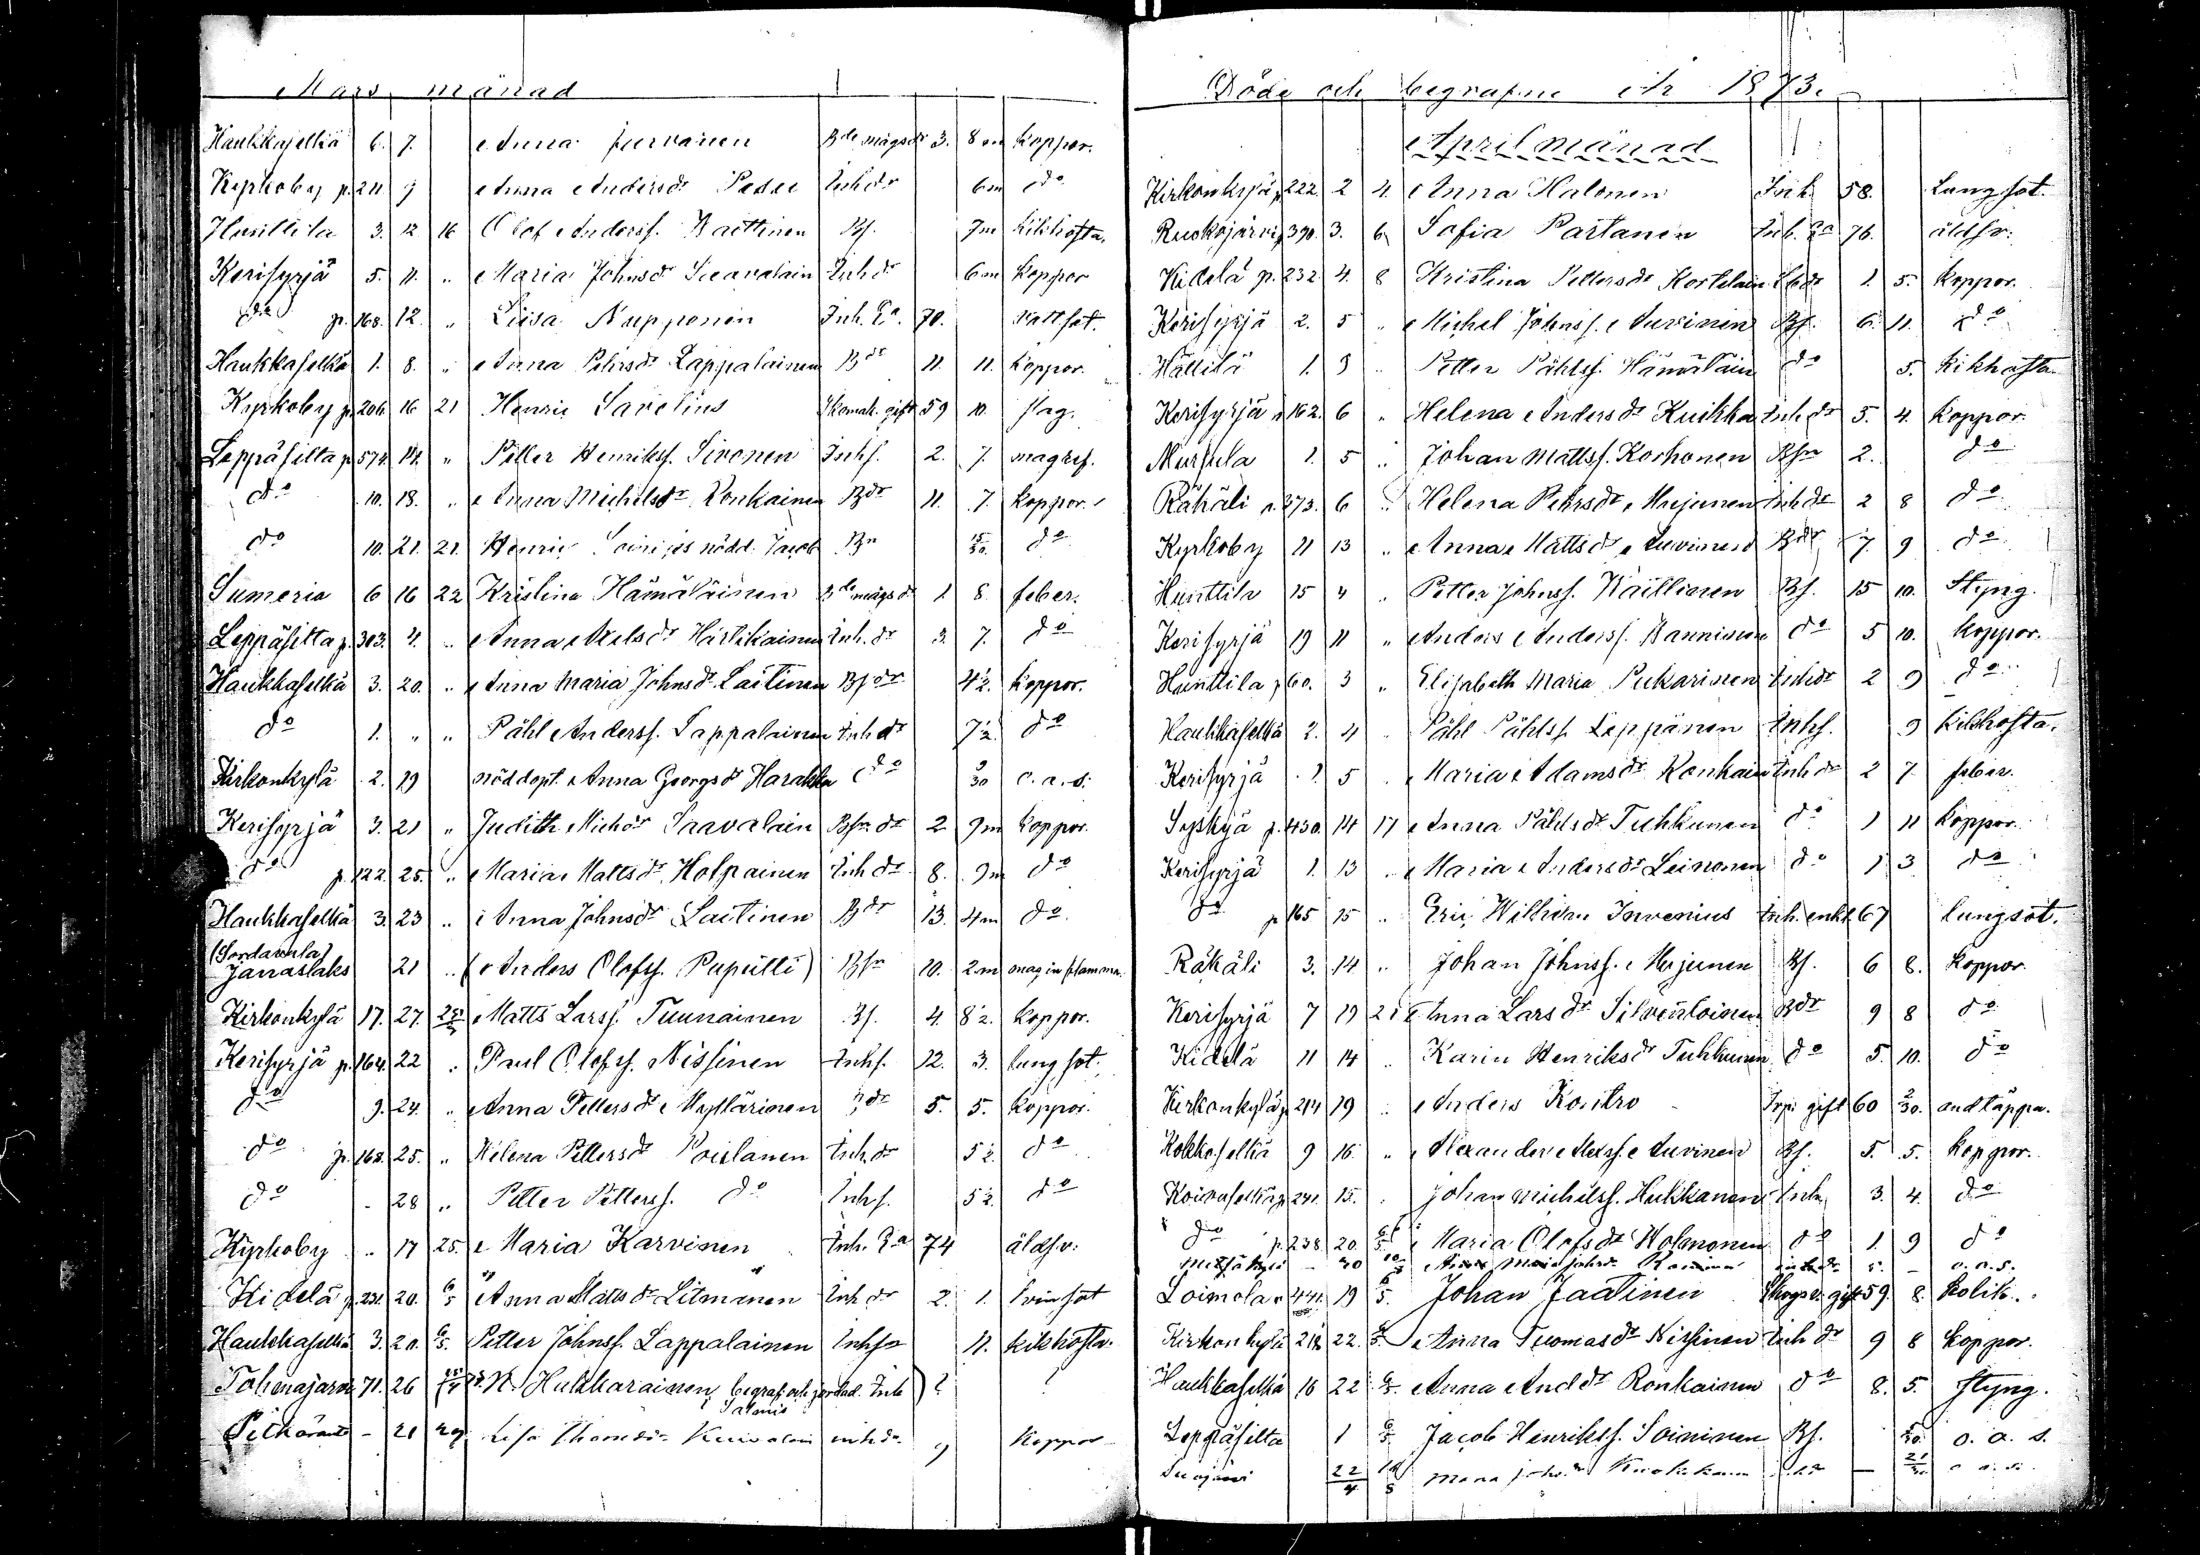 Mars månad
Haukkaselkä 6. 7. Anna Jurvanen 3. 8 m koppor.
Kyrkoby p. 211 9 Anna Andersdr Inhdr 6m do
Hunttila 3. 12 16 Olof Anderss. Bs. 7m kikhosta.
Kerisyrjä 5. 11. " Maria Johnsdr Inhdr 6m koppor
do p. 168. 12. " Liisa Nupponen Inh. Ea. 70.
Haukkaselkä 1. 8. " Anna Pehrsdr Lappalainen Bdr 11. 11. koppor.
Kyrkoby p. 206 16 21 Henric Savelius Skomak. gift 59 10. slag.
Leppäsilta p. 574 14. " Petter Henrikss. Sironen Inhs. 2. 7.
do 10. 18. " Anna Michelsdr Ronkainen Bdr 11. 7. koppor.
do 10. 21. 21. Henric nödd. Jacob Bn 15/30 do
Sumeria 6 16 22 Kristina Hämäläinen 1. 8. feber.
Leppäsilta p. 303. 4. " Anna Axelsdr Härkikainen Inh. dr 3. 7. do
Haukkaselkä 3. 20. " Anna Maria Johnsdr Laitinen 4½. koppor.
do 1. " " Påhl Anderss. Lappalainen 7½. do
Kirkonkylä 2. 19 nöddöpt. Anna Georgsdr Harakka do 9/30 o. a. s.
Kerisyrjä 3. 21 " Judith Michdr Saavalain 2 9m koppor.
do p. 122. 25. " Maria Mattsdr Holpainen Inh dr 8. 9m do
Haukkaselkä 3. 23 " Anna Johnsdr Laitinen Bdr 13. 4m do
(Sordavala)
Janaslaks 21 " (Anders Olofss. Puputti) Bsn 10. 2m maginflamma.
Kirkonkylä 17. 27. Matts Larss. Tuunainen Bs. 4. 8½. koppor.
Kerisyrjä p. 164. 22 " Paul Olofss. Nissinen Inhs. 12. 3. lungsot.
do 9. 24. " Anna Pettersdr Myllärinen 5. 5. koppor.
do p. 168. 25. " Helena Pettersdr Inh. dr 5½. do
do - 28 " Petter Petterss. do Inhs. 5½. do
Kyrkoby " 17 25. Maria Karvinen Inh. Ea 74 åldsv.
Kidelä p. 231. 20. 6/5 Anna Mattsdr Litmanen Inh dr 2. 1.
Haukkaselkä 3. 20. 6/5. Petter Johnss. Lappalainen Inhsn 11. kikhosta.
Tohmajärvi 71. 26 N. Hukkarainen, begraf. och jordad. i Salmis Inh ) ? ?
Pitkäranta - 21 29 Lisa Thomasdr inhdr 9 koppor

Döde och begrafne År 1873.
April månad
Kirkonkylä p. 222. 2 4. Anna Halonen Inh. 58. Lungsot.
Ruskojärvi p. 390. 3. 6. Sofia Partanen Inh. Ea 76. åldsv.
Kidelä p. 232 4. 8 Kristina Pettersdr Kortelain 1. 5. koppor.
Kerisyrjä 2. 5 " Michel Johnss. Auvinen Bs. 6. 11. do
Hättilä 1. 3 " Petter Påhlss. Hämäläin do 5. kikhosta.
Kerisyrjä 162. 6 " Helena Andersdr Kuikka Inh dr 5. 4. koppor.
Mursula 1. 5 " Johan Mattss. Korhonen Bsn 2. do
Räkäli 373. 6 " Helena Pehrsdr Mujunen Inh dr 2 8 do
Kyrkoby 11 13 " Anna Mattsdr Auvinen Bdr 7. 9 do
Hunttila 15 4 " Petter Johnss. Bs. 15 10. Styng.
Kerisyrjä 19 11 " Anders Anderss. Banninen do 5 10. koppor.
Hunttila p. 60. 3 " Elisabeth Maria Pukarinen Inhdr 2 9 do
Haukkaselkä 2. 4 " Påhl Påhlss. Leppänen Inhs. 9 kikhosta.
Kerisyrjä 1 5 " Maria Adamsdr Ronkain Inh dr 2 7. feber.
Syskyä p. 430. 14 17 Anna Påhlsdr Tuhkunen do 1 11 koppor.
Kerisyrjä 1. 13 " Maria Andersdr Leinonen do 1 3 do
do p. 165 15 " Eric Willman Inh. enkl. 67 lungsot.
Räkäli 3. 14 " Johan Johnss. Mujunen Bs. 6 8. koppor.
Kerisyrjä 7 19 21 Anna Larsdr Silvennoinen Bdr 9 8 do
Kidelä 11 14 " Karin Henriksdr Tuhkunen do 5. 10. do
Kirkonkylä p. 214 19 " Anders Kontro gift 60 2/30. andtäppa.
Kokkoselkä 9 16 " Alexander Alexss. Auvinen Bs. 5. 5. koppor.
Koivuselkä p. 241. 15. " Johan Michelss. Hukkanen 3. 4. do
do p. 238. 20. 6/5 Maria Olofsdr Holmonen do 1. 9 do
- 30 Anna Maria Johsdr inhdr - o. a. s.
Loimola 441. 19 6/5. Johan Jaatinen gift 59. 8. kolik.
Kirkonkylä 218 22. 6/5 Anna Tuomasdr Nissinen Inh dr 9 8 koppor.
Haukkaselkä 16 22 6/5 Anna Anddr Ronkainen do 8. 5. styng.
Leppäsilta 1 6/5 Jacob Henrikss. Soininen Bs. o. a. s.
Suojärvi 22/4 Maria Johsdr - 21/30 o. a. s.